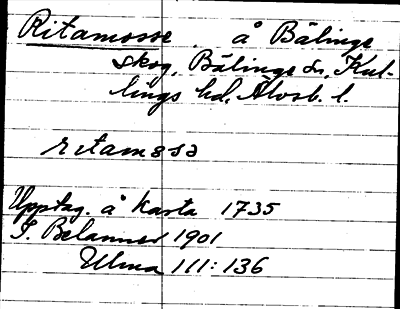 Ritamosse å Bälinge
skog, Bälinge sn, Kul-
lings hd, Älvsb. l.
ritamosa
Upptag. å karta 1735
S. Belanner 1901
Ulma 111:136